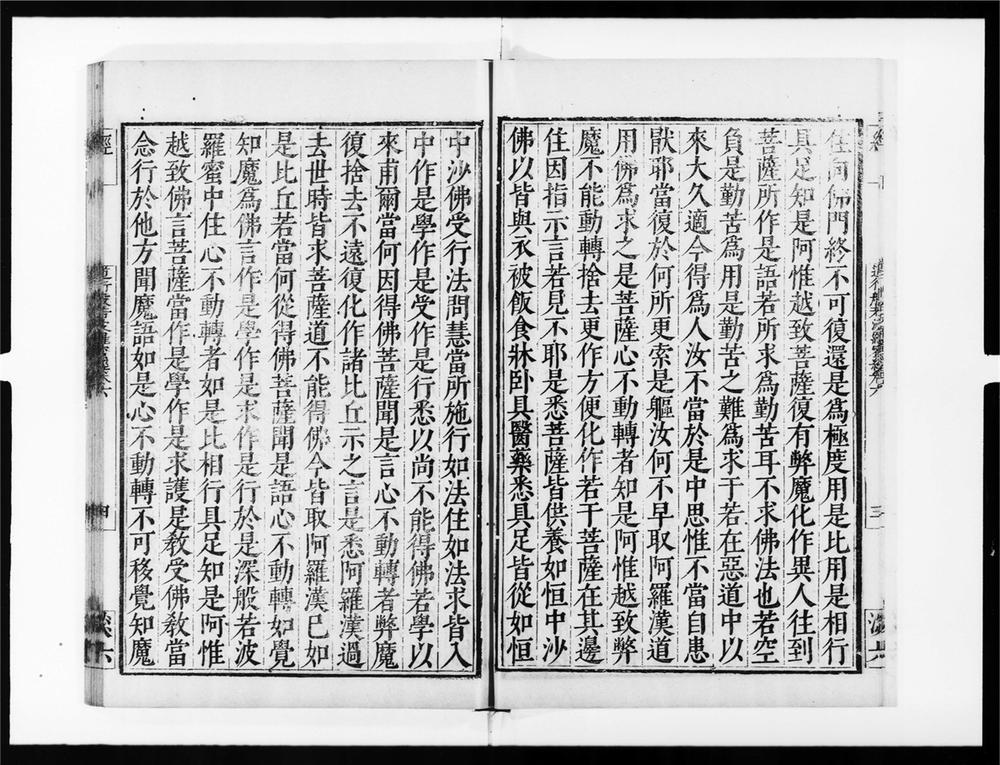 住向佛門終不可復還是為極度用是比用是相行
具足知是阿惟越致菩薩復有弊魔化作異人往到
菩薩所作是語若所求為勤苦耳不求佛法也若空
負是勤苦為用是勤苦之難為求于若在惡道中以
來大久適今得為人汝不當於是中思惟不當自患
猒耶當復於何所更索是軀汝何不早取阿羅漢道
用佛為求之是菩薩心不動轉者知是阿惟越致弊
魔不能動轉捨去更作方便化作若干菩薩在其邊
住因指示言若見不耶是悉菩薩皆供養如恒中沙
佛以皆與衣被飯食牀臥具醫藥悉具足皆從如恒
中沙佛受行法問慧當所施行如法住如法求皆入
中作是學作是受作是行悉以尚不能得佛若學以
來甫爾當何因得佛菩薩聞是言心不動轉者弊魔
復捨去不遠復化作諸比丘示之言是悉阿羅漢過
去世時皆求菩薩道不能得佛今皆取阿羅漢已如
是比丘若當何從得佛菩薩聞是語心不動轉如覺
知魔為佛言作是學作是求作是行於是深般若波
羅蜜中住心不動轉者如是比相行具足知是阿惟
越致佛言菩薩當作是學作是求護是教受佛教當
念行於他方聞魔語如是心不動轉不可移覺知魔
經